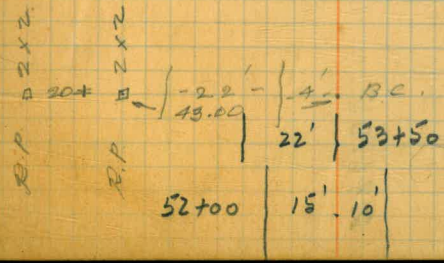 R.P. □ 2x2
R.P. □ 2x2
20± - 22' - 4' - B.C.
43.00
22' 53+50
52+00 15'. 10'